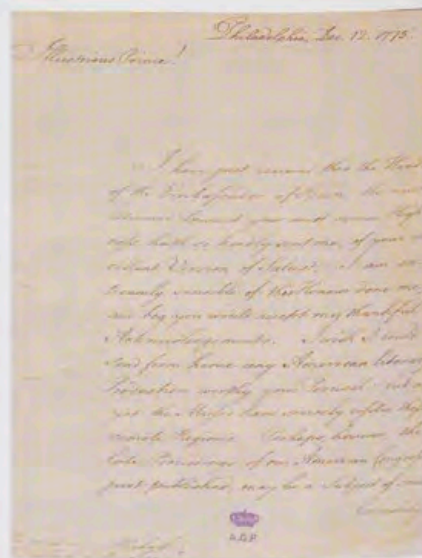 Philadelphia, Dec. 12. 1775.
Illustrious Prince!
I have just received thro' the Hands
of the Embassador of Spain, the
you most Serene High
ness hath so kindly sent me, of your
Version of Salust. I am ex
tremely sensible of the Honour done me,
and beg you would accept my thankful
Acknowledgements. I wish I could
send from hence any American Literary
Production worthy your Perusal; but as
yet the Muses have scarcely visited these
remote Regions. Perhaps, however, the
late Proceedings of our American Congress,
just published, may be a Subject of some
A.G.P.